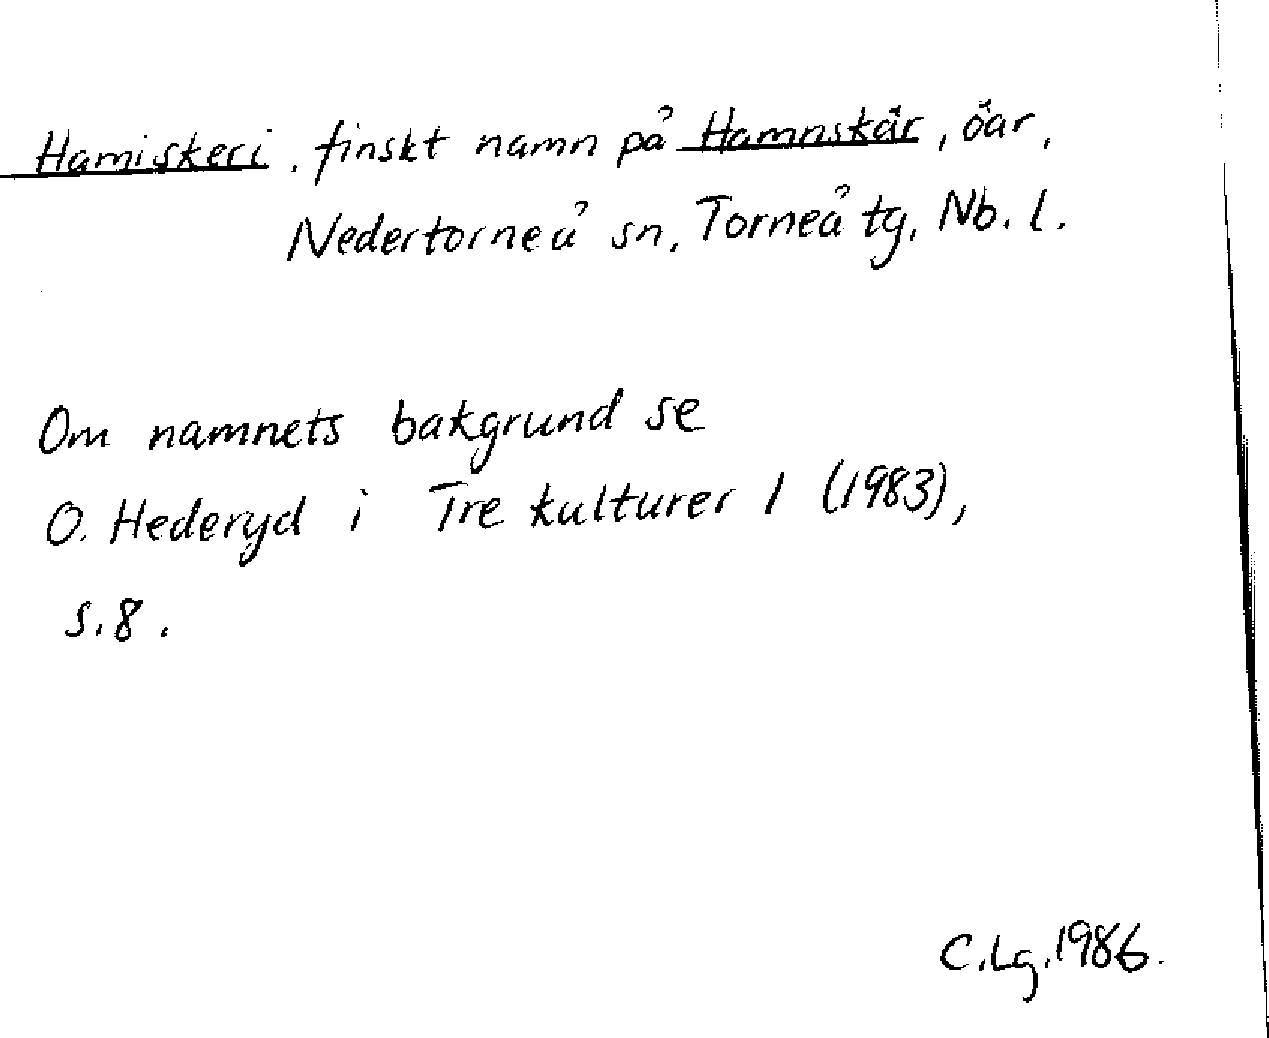 Hamiskeri, finskt namn på Hamnskär, öar,
Nedertorneå sn, Torneå tg, Nb. l.
Om namnets bakgrund se
O. Hederyd i Tre kulturer 1 (1983),
s. 8.
C. Lg. 1986.